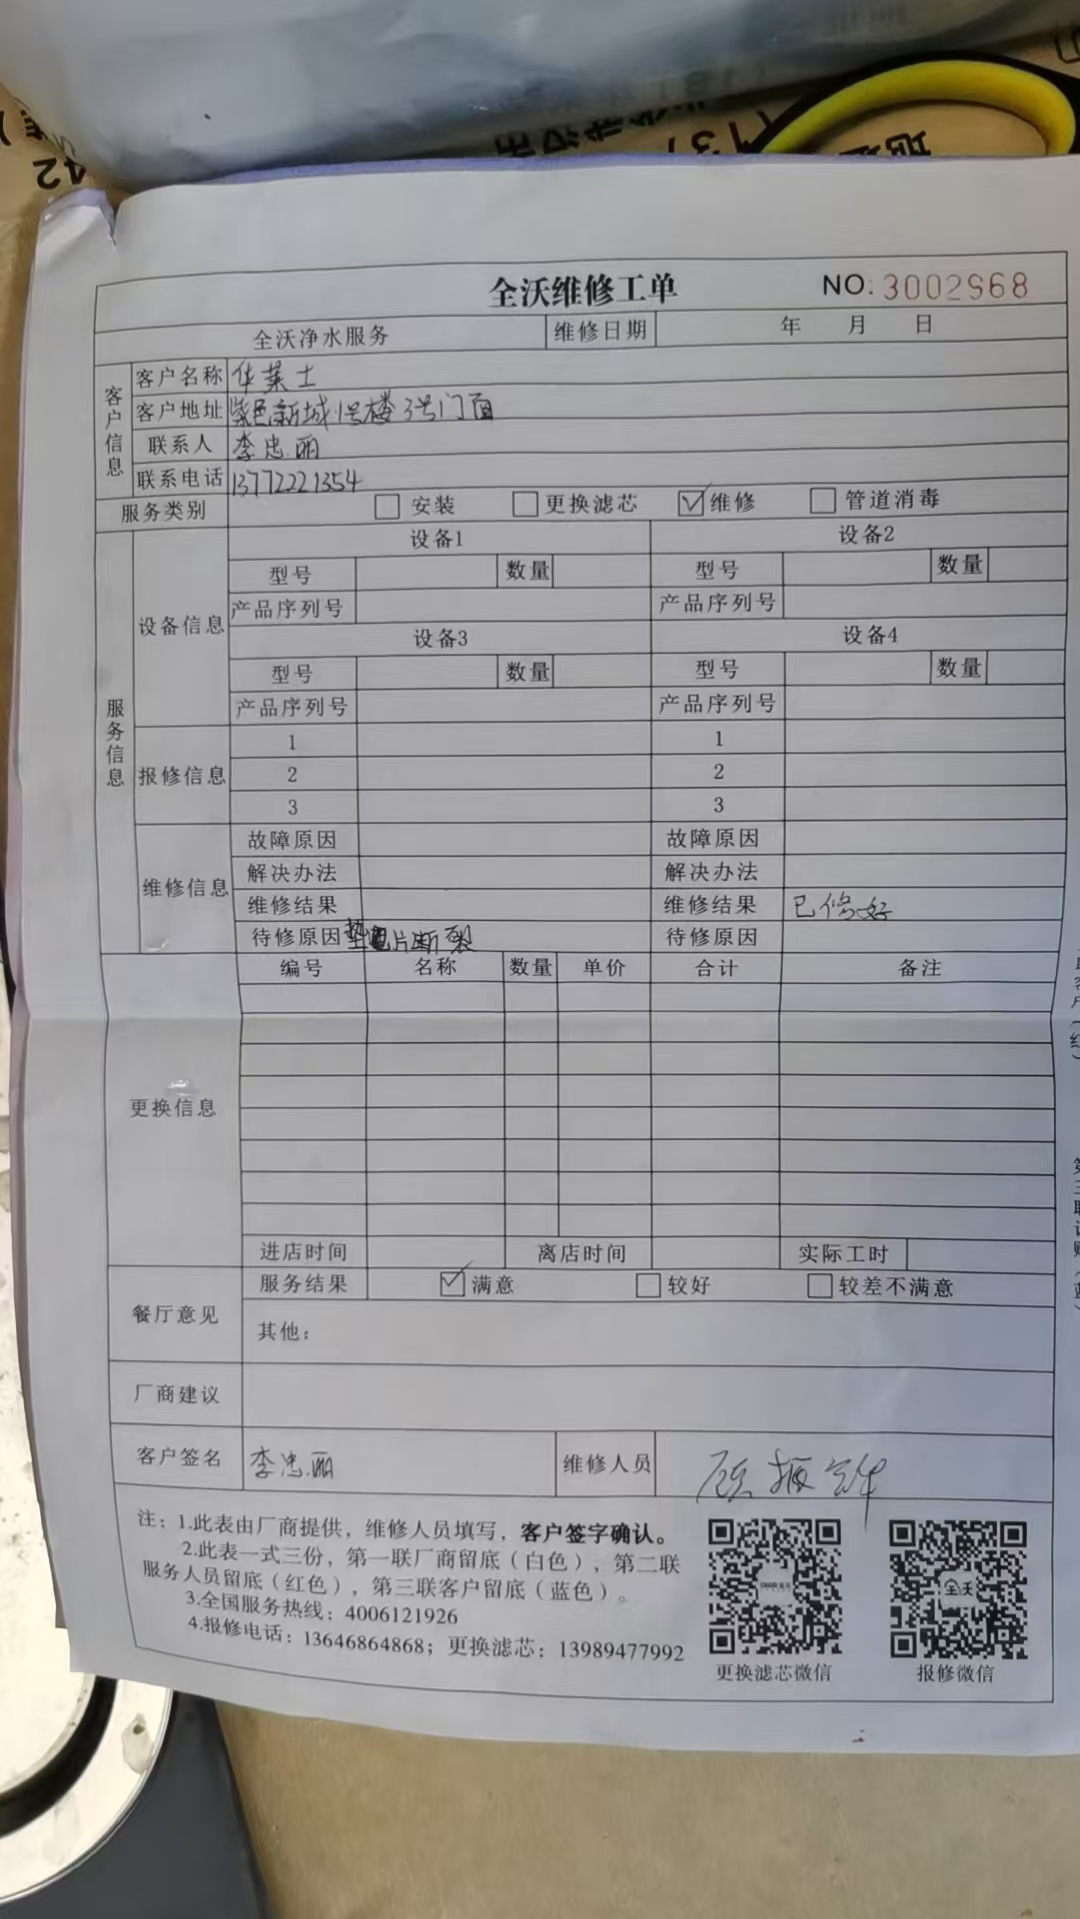 全沃维修工单 NO: 3002968
全沃净水服务 维修日期 年 月 日
客户信息
客户名称 华莱士
客户地址 紫色新城1号楼3号门面
联系人 李忠丽
联系电话 13772221354
服务类别 安装 更换滤芯 维修 管道消毒
服务信息
设备信息
设备1 设备2
型号 数量 型号 数量
产品序列号 产品序列号
设备3 设备4
型号 数量 型号 数量
产品序列号 产品序列号
报修信息
1 1
2 2
3 3
维修信息
故障原因 故障原因
解决办法 解决办法
维修结果 维修结果 已修好
待修原因 垫片断裂 待修原因
更换信息
编号 名称 数量 单价 合计 备注
进店时间 离店时间 实际工时
餐厅意见
服务结果 满意 较好 较差不满意
其他：
厂商建议
客户签名 李忠丽 维修人员 顾振
注：1.此表由厂商提供，维修人员填写，客户签字确认。
2.此表一式三份，第一联厂商留底（白色），第二联
服务人员留底（红色），第三联客户留底（蓝色）。
3.全国服务热线：4006121926
4.报修电话：13646864868；更换滤芯：13989477992
更换滤芯微信 报修微信
全沃